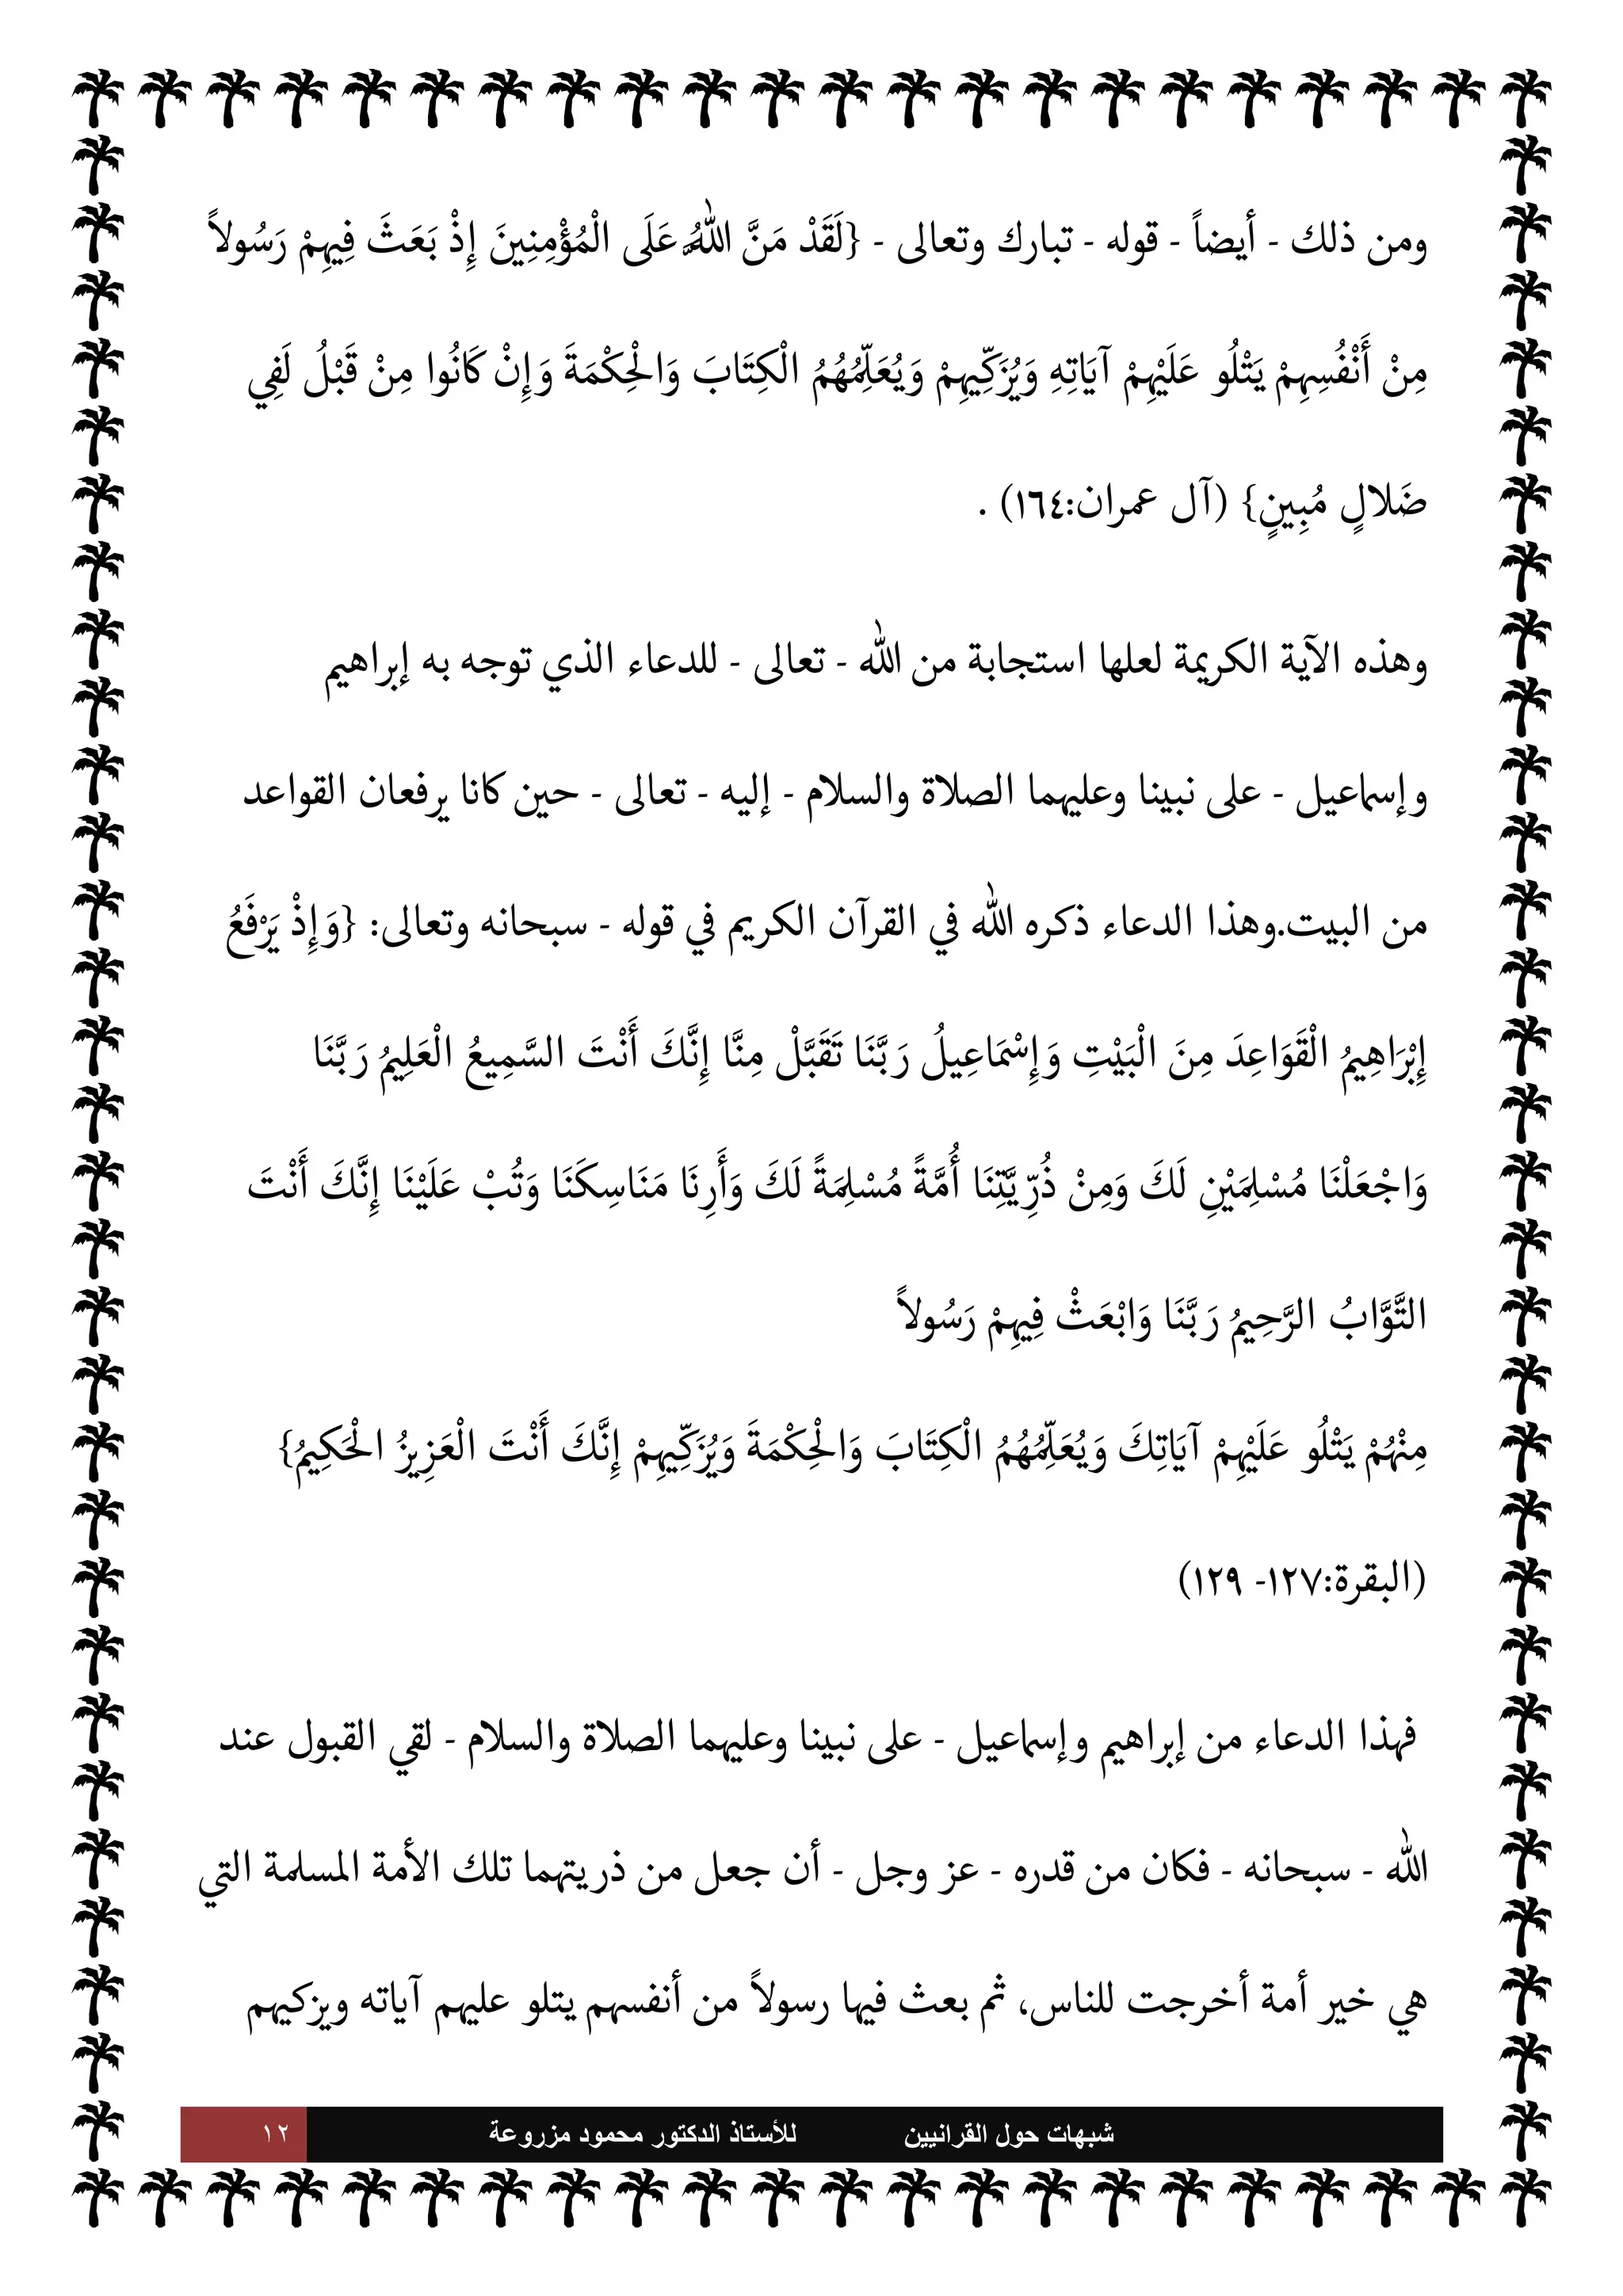 ومن ذلك - أيضاً - قوله - تبارك وتعالى - {لَقَدْ مَنَّ اللهُ عَلَى الْمُؤْمِنِينَ إِذْ بَعَثَ فِيهِمْ رَسُولاً
مِنْ أَنْفُسِهِمْ يَتْلُو عَلَيْهِمْ آيَاتِهِ وَيُزَكِّيهِمْ وَيُعَلِّمُهُمُ الْكِتَابَ وَالْحِكْمَةَ وَإِنْ كَانُوا مِنْ قَبْلُ لَفِي
ضَلالٍ مُبِينٍ} (آل عمران:١٦٤) .
وهذه الآية الكريمة لعلها استجابة من الله - تعالى - للدعاء الذي توجه به إبراهيم
وإسماعيل - على نبينا وعليهما الصلاة والسلام - إليه - تعالى - حين كانا يرفعان القواعد
من البيت.وهذا الدعاء ذكره الله في القرآن الكريم في قوله - سبحانه وتعالى: {وَإِذْ يَرْفَعُ
إِبْرَاهِيمُ الْقَوَاعِدَ مِنَ الْبَيْتِ وَإِسْمَاعِيلُ رَبَّنَا تَقَبَّلْ مِنَّا إِنَّكَ أَنْتَ السَّمِيعُ الْعَلِيمُ رَبَّنَا
وَاجْعَلْنَا مُسْلِمَيْنِ لَكَ وَمِنْ ذُرِّيَّتِنَا أُمَّةً مُسْلِمَةً لَكَ وَأَرِنَا مَنَاسِكَنَا وَتُبْ عَلَيْنَا إِنَّكَ أَنْتَ
التَّوَّابُ الرَّحِيمُ رَبَّنَا وَابْعَثْ فِيهِمْ رَسُولاً
مِنْهُمْ يَتْلُو عَلَيْهِمْ آيَاتِكَ وَيُعَلِّمُهُمُ الْكِتَابَ وَالْحِكْمَةَ وَيُزَكِّيهِمْ إِنَّكَ أَنْتَ الْعَزِيزُ الْحَكِيمُ}
(البقرة:١٢٧- ١٢٩)
فهذا الدعاء من إبراهيم وإسماعيل - على نبينا وعليهما الصلاة والسلام - لقي القبول عند
الله - سبحانه - فكان من قدره - عز وجل - أن جعل من ذريتهما تلك الأمة المسلمة التي
هي خير أمة أخرجت للناس، ثم بعث فيها رسولاً من أنفسهم يتلو عليهم آياته ويزكيهم
شبهات حول القرانيين للأستاذ الدكتور محمود مزروعة ١٢